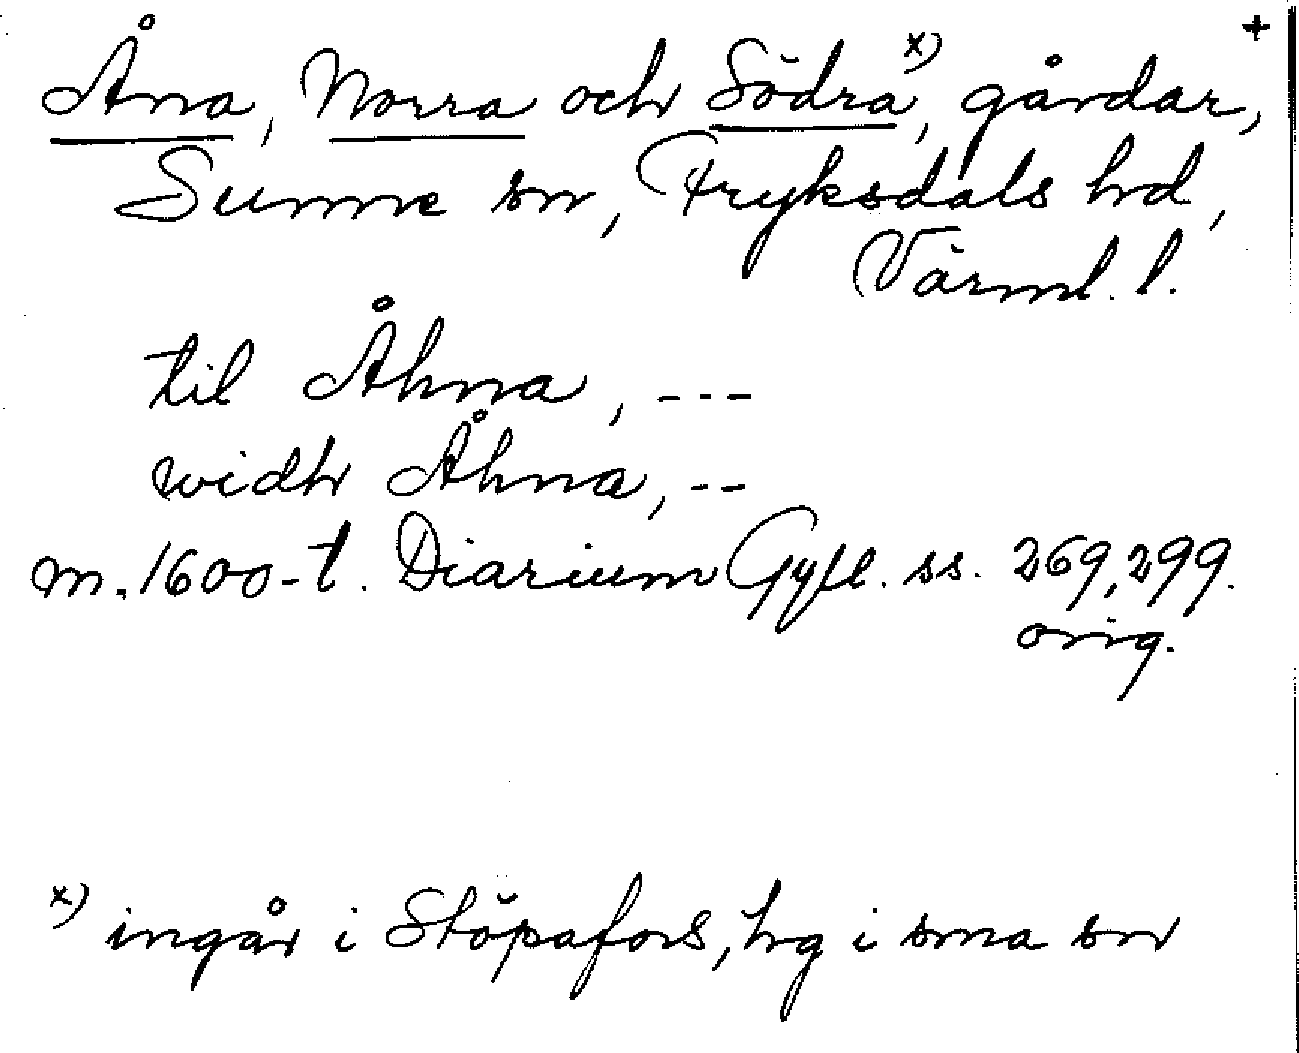 +
Åna, Norra och Södra x), gårdar,
Sunne sn, Fryksdals hd,
Värml. l.
til Åhna, ---
widh Åhna, --
m. 1600-t. Diarium Gyll. ss. 269, 299.
orig.
x) ingår i Stöpafors, hg i sma sn